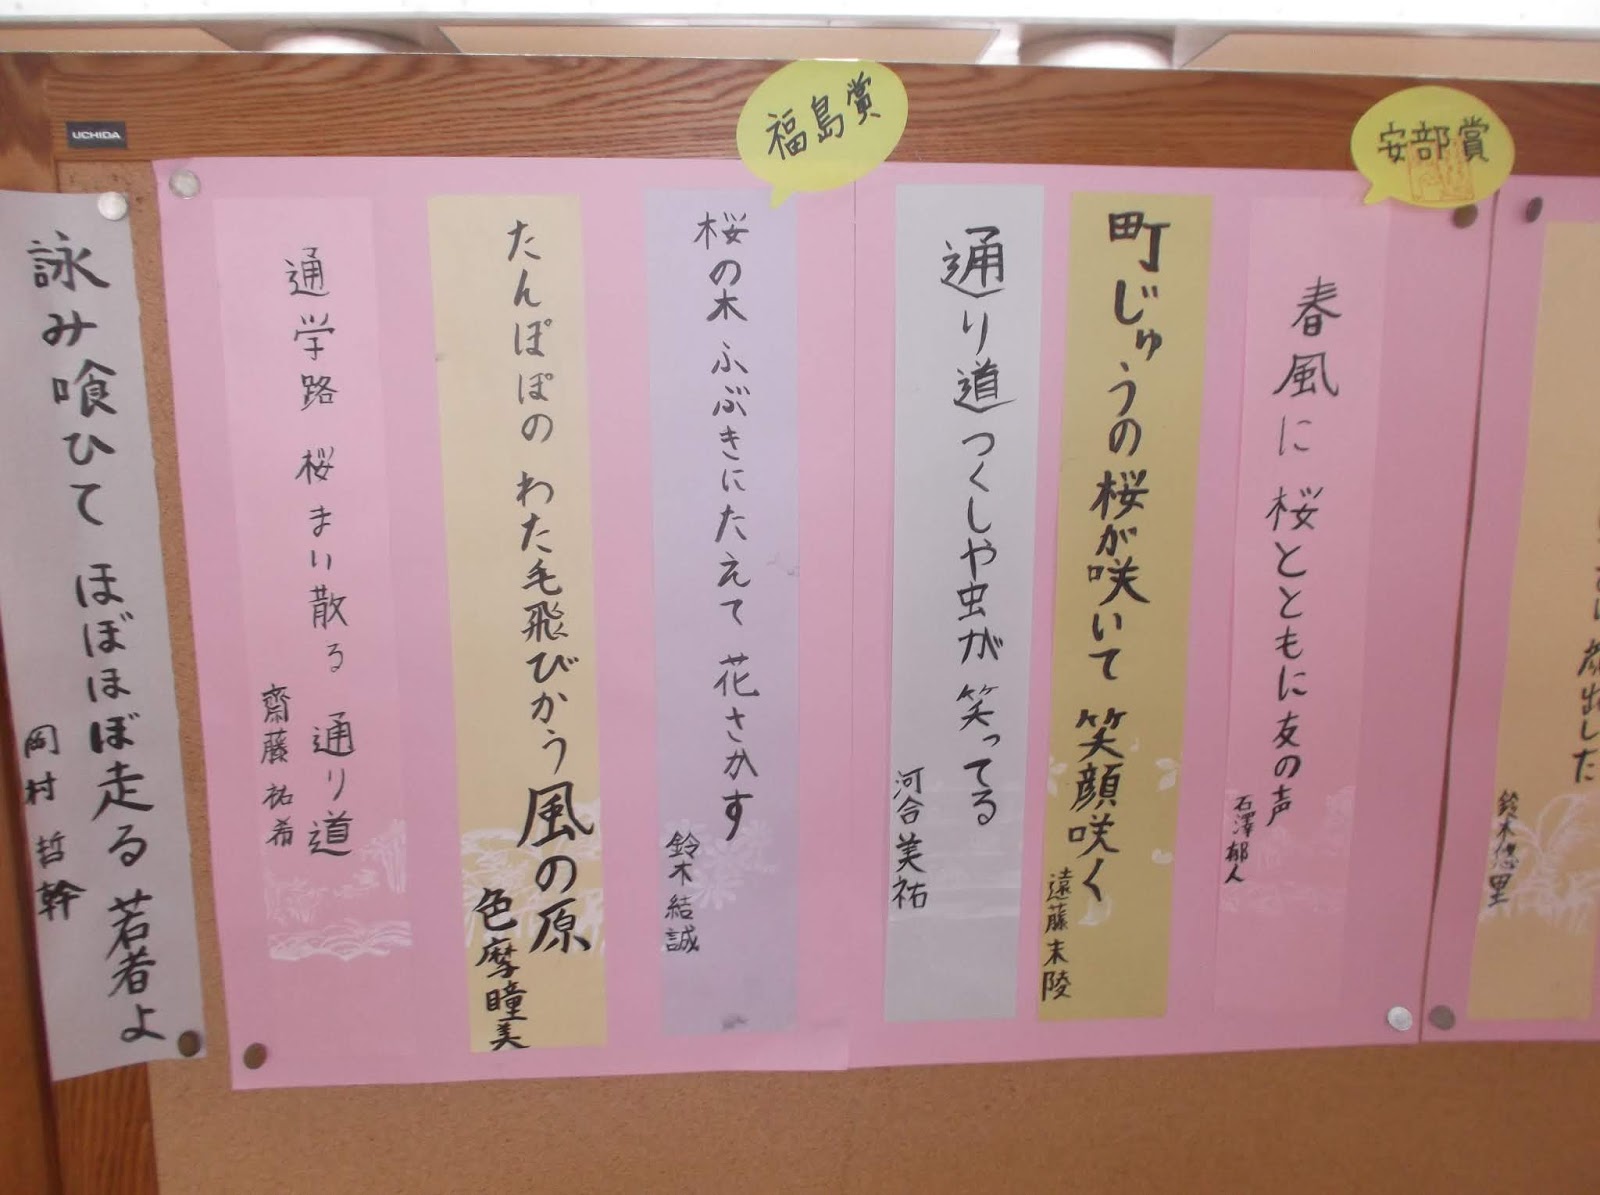 UCHIDA
福島賞
安部賞
顔出した
鈴木悠里
春風に 桜とともに友の声
石澤郁人
町じゅうの桜が咲いて 笑顔咲く
遠藤末陵
通り道 つくしや虫が 笑ってる
河合美祐
桜の木 ふぶきにたえて 花さかす
鈴木結誠
たんぽぽの わた毛飛びかう 風の原
色摩瞳美
通学路 桜まい散る 通り道
齋藤祐希
詠み喰ひて ほぼほぼ走る 若者よ
岡村哲幹